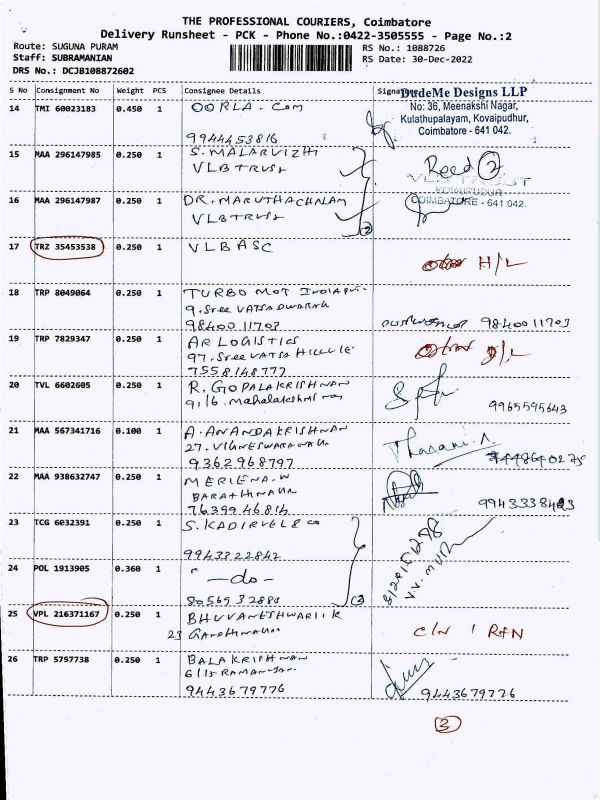 THE PROFESSIONAL COURIERS, Coimbatore
Delivery Runsheet - PCK - Phone No.:0422-3505555 - Page No.:2
Route: SUGUNA PURAM
RS No.: 1088726
Staff: SUBRAMANIAN
RS Date: 30-Dec-2022
DRS No.: DCJB108872602
S No Consignment No Weight PCS Consignee Details Signature
DudeMe Designs LLP
No: 36, Meenakshi Nagar,
Kulathupalayam, Kovaipudhur,
Coimbatore - 641 042.
14 TMI 60023183 0.450 1 OORLA.com
9944453816
15 MAA 296147985 0.250 1 S. MALARVIZHI
VLB TRUST
Recd 2
VLB TRUST
KOVAIPUDUR
COIMBATORE - 641 042.
16 MAA 296147987 0.250 1 DR. MARUTHACHALAM
VLB TRUST
2
17 TRZ 35453538 0.250 1 VLB ASC
H/L
18 TRP 8049064 0.250 1 TURBO MOT INDIA PVT.
9, Sree VATSA DWARAKA
98400 11703
98400 11703
19 TRP 7829347 0.250 1 AR LOGISTICS
97, Sree VATSA
7558148777
20 TVL 6602605 0.250 1 R. GOPALAKRISHNAN
9/16. Mahalakshmi
9965595643
21 MAA 567341716 0.100 1 A. ANANDAKRISHNAN
27. VIGNESWARA
9362968797
22 MAA 938632747 0.250 1 MERLENA.W
7639946814
23 TCG 6032391 0.250 1 S. KADIRVEL & CO
9943322842
24 POL 1913905 0.360 1 " —do—
(2)
25 VPL 216371167 0.250 1 BHUVANESHWARI.K
23
C/N 1 RTN
26 TRP 5797738 0.250 1 BALAKRISHNAN
6/15
9443679776
9443679776
3